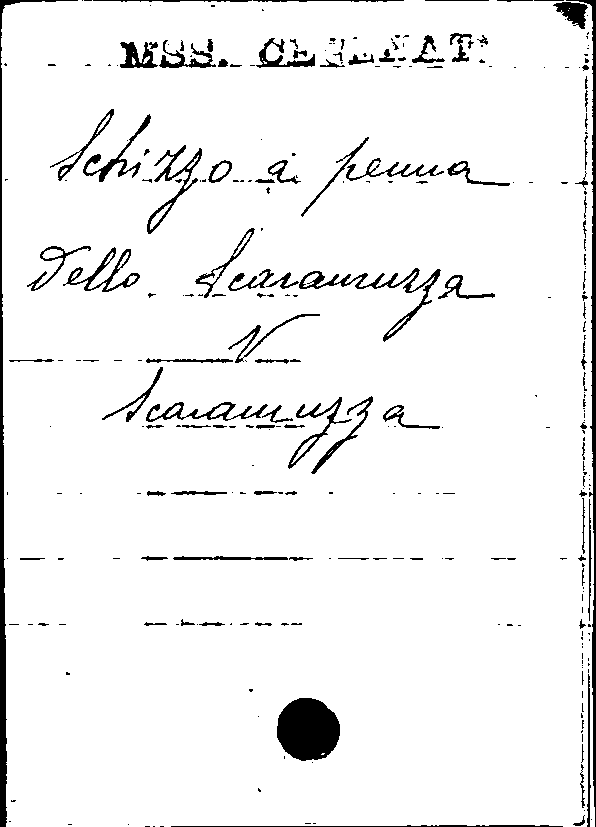 MSS. CERENATI
Schizzo a penna
Dello Scaramuzza
V
Scaramuzza